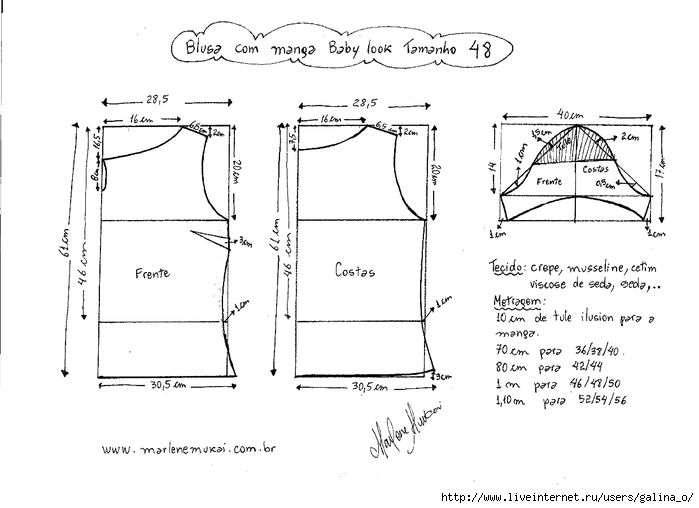 Blusa com manga Baby look Tamanho 48
28,5
16cm
6,5cm
2cm
16,5
20cm
61cm
46cm
3cm
Frente
1cm
30,5cm
28,5
16cm
6,5
2cm
7,5
20cm
61cm
46cm
Costas
1cm
3cm
30,5cm
40cm
1,5cm
2cm
Tule
1cm
14
17cm
Frente
Costas
0,5cm
1cm
1cm
Tecido: crepe, musseline, cetim
viscose de seda, seda,..
Metragem:
10 cm de tule ilusion para a
manga.
70 cm para 36/38/40.
80 cm para 42/44
1 m para 46/48/50
1,10m para 52/54/56
Marlene Mukai
www.marlenemukai.com.br
http://www.liveinternet.ru/users/galina_o/